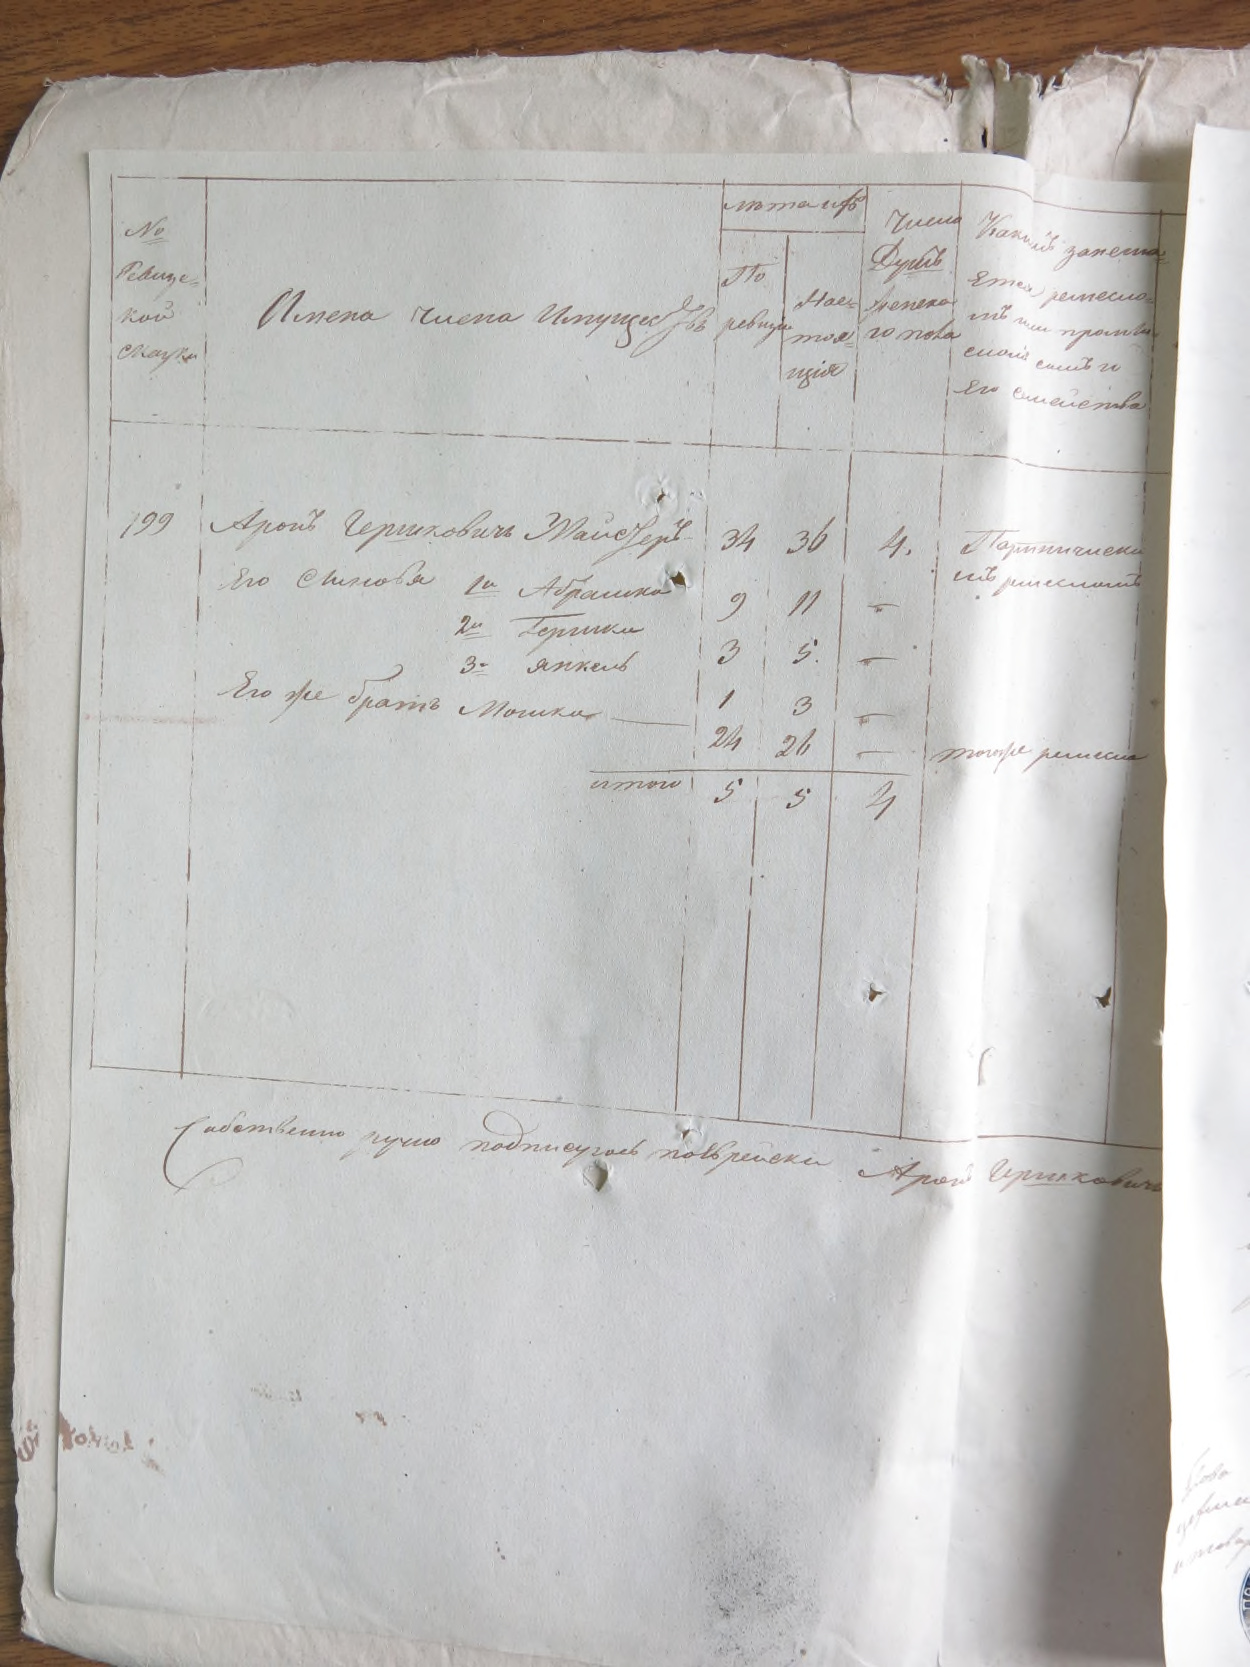 №
Ревизс-
кой
скаски
Имена числа Имуществъ
лета ихъ
По
ревизии
Нас-
тоя-
щія
Число
Душъ
женска
го пола
Какимъ занема-
Етса ремесло-
мъ или промы
сломъ самъ и
Его семейства
199 Аронъ Гершковичъ Майстеръ 34 36 4. Портничиски
мъ ремесломъ
Его Синовя 1й Абрашко 9 11 —
2й Гершко 3 5. —
3й Янкель 1 3 —
Его же братъ Мошко — 24 26 — тогоже ремесла
итого 5 5 4
Собственно ручно подписуюсь поеврейски Аронъ Гершковичъ